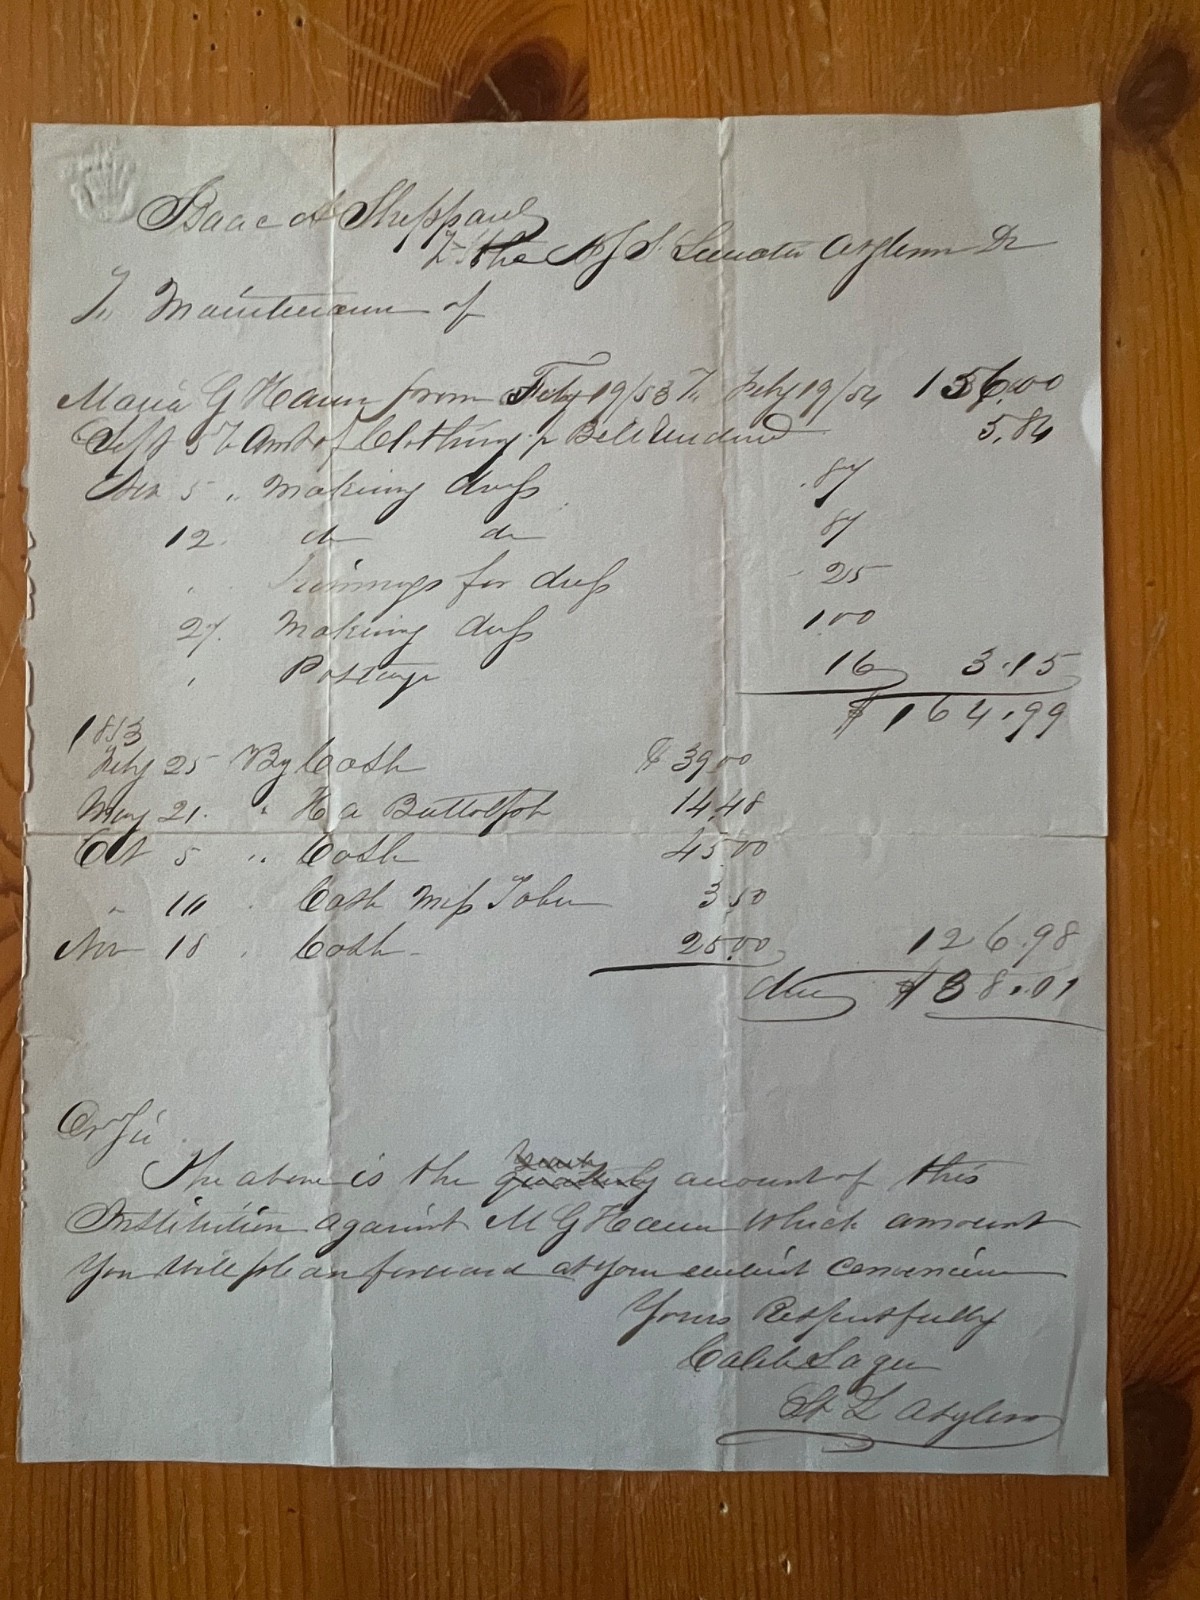 Isaac A Sheppard
To the N J S Lunatic Asylum Dr
To Maintenance of
Maria G Hann from Feby 19/53 To Feby 19/54 156.00
Sept 5 To Amt of Clothing pr Bill Rendered 5.84
Dec 5 " Making dress .87
12. do do 87
" Trimmings for dress 25
27. Making dress 1.00
" Postage 16 3.15
$164.99
1853
Feby 25 By Cash $39.00
May 21. " H A Buttolph 14.48
Oct 5 " Cash 45.00
" 10 " Cash Miss Tabor 3.50
Nov 18 " Cash 25.00 126.98
due $38.01
Dr Sir
The above is the quarterly account of this
Institution against M G Hann which amount
You will please forward at your earliest convenience
Yours Respectfully
Caleb Sager
St L Asylum